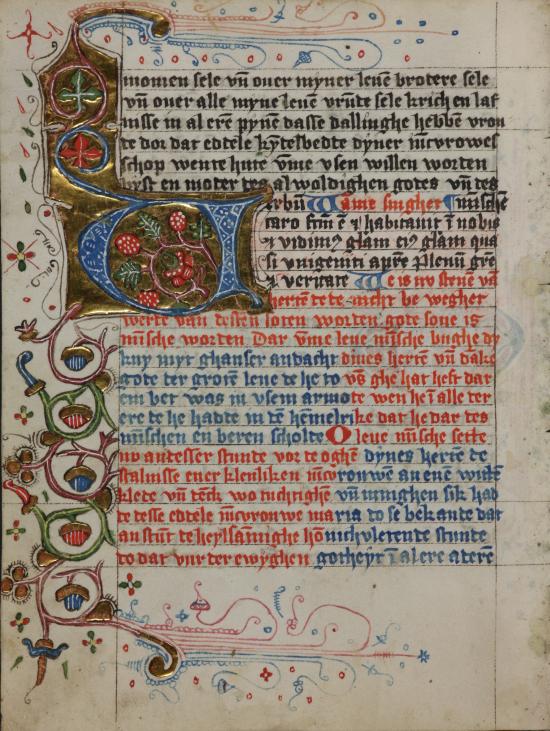 momen sele vn̄ over myner leuē brotere sele
vn̄ over alle myne leuē vrūte sele krich en laf
nisse in al erē pynē dasse dallinghe hebbē vron
te dor dat edtele kȳtelbedte dyner iūcvrowes
schop wente hute vm̄e vsen willen worten
byst en moter tes alwoldighen gotes vn̄ tes
erbū Wāme singhet nūsche
caro fctm ē ⁊ habitauit ī nobis
⁊ vidimꝰ glam eiꝰ glam qua
si vnigeniti apr̄e plenū gre
⁊ veritate We is nv stenē vā
herten te te nicht be wegher
werte van testen soten worten gote sone is
nūsche worten Dar vm̄e leue nūsche bughe dy
kny myt ghanser andacht dines hertē vn̄ dāke
gote ter grotē leue te he to vs ghe hat heft dat
em bet was in vsem armote wen he ī alle ter
ere te he hadte in tē hēmelrike dat he dar tes
nūschen en beren scholte O leue nūsche sette
nv antesser stunte vor te oghē dynes hertē te
stalnisse ener klenliken iūcvronwe an enē witē
klete vn̄ tēck wo tuchtighē vn̄ innighen sik had
te tesse edtele iūcvronwe maria to se bekante dat
an stūt te heylsāmighe hō nichvletente stunte
to dat vnr ter ewyghen gotheyt ī al ere a terē